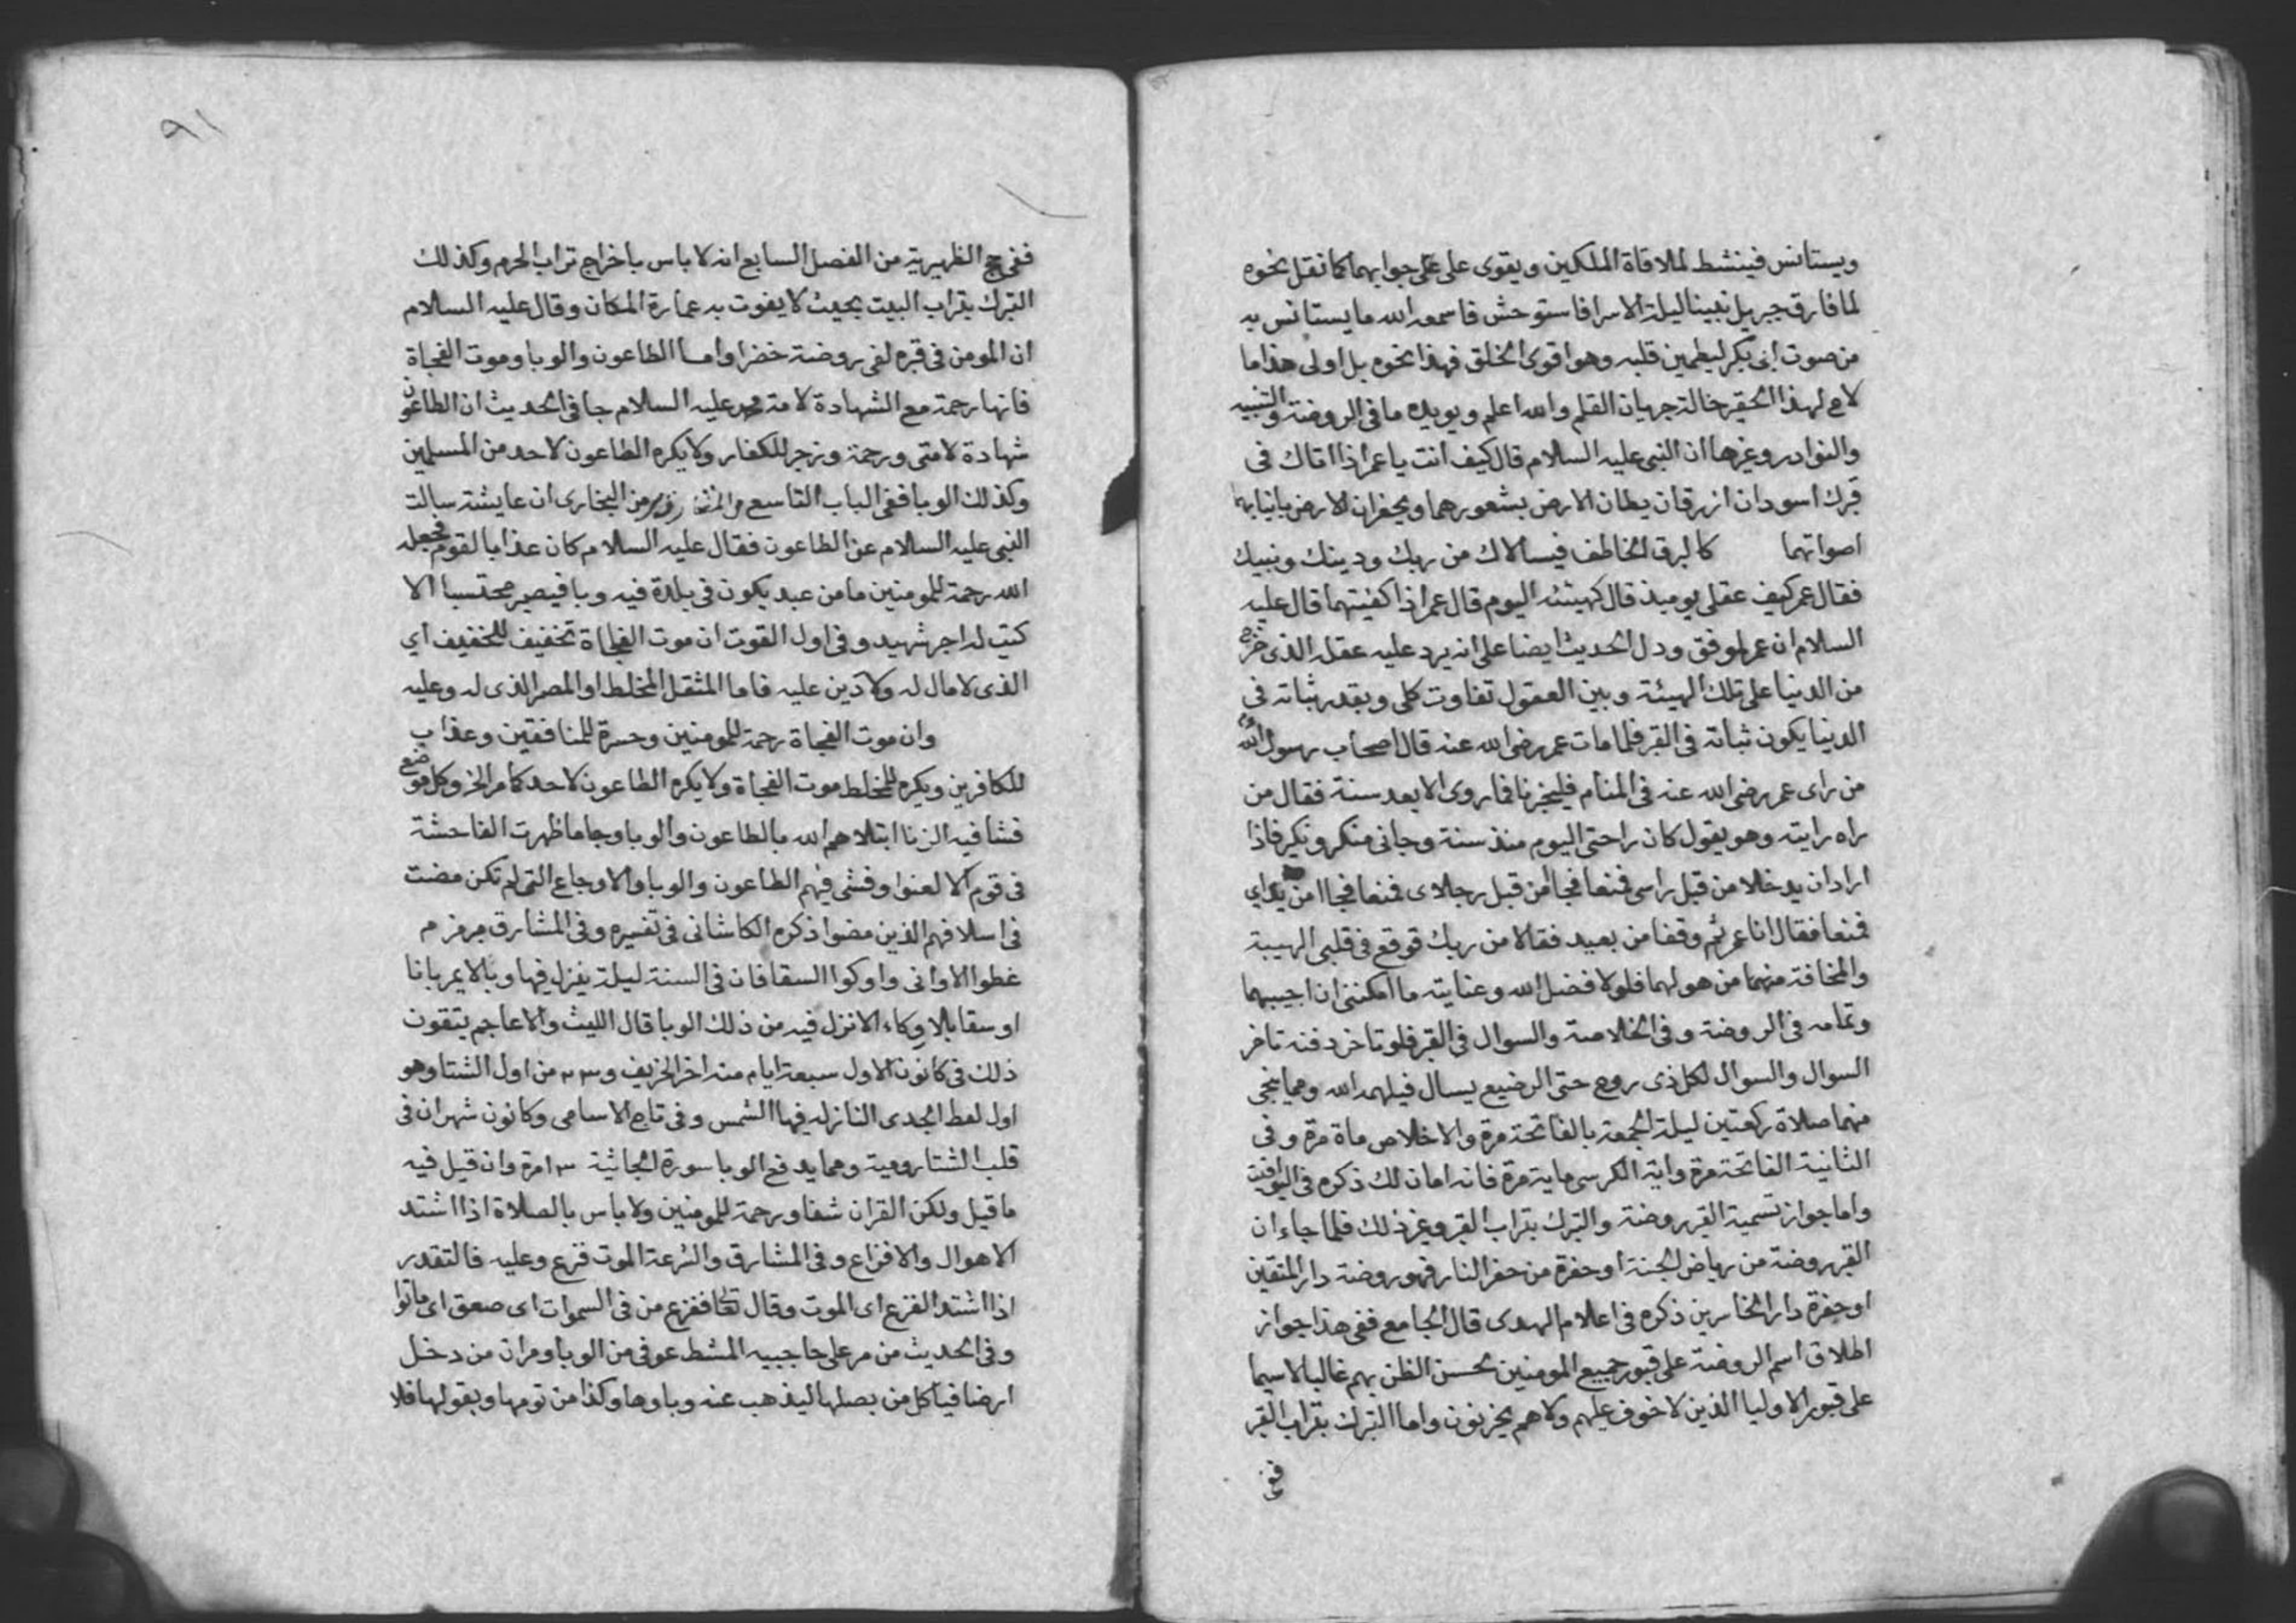 ويستانس فينشط لملاقاة الملكين ويقوى على على جوابهما كما نقل نحوه
لما فارق جبريل نبينا ليلة الاسرا فاستوحش فاسمعه الله ما يستانس به
من صوت ابى بكر ليطمين قلبه وهو اقوى الخلق فهذا نحوه بل اولى هذا ما
لاح لهذا الحقير حالة جريان القلم والله اعلم ويويده ما فى الروضة والتنبيه
والنوادر وغيرها ان النبى عليه السلام قال كيف انت يا عمر اذا اتاك فى
قبرك اسودان ازرقان يطان الارض بشعورهما ويحفران الارض بانيابهما
اصواتهما كالبرق الخاطف فيسالاك من ربك ودينك ونبيك
فقال عمر كيف عقلى يوميذ قال كهيئته اليوم قال عمر اذا كفيتهما قال عليه
السلام ان عمر لموفق ودل الحديث ايضا على انه يرد عليه عقله الذى خرج
من الدنيا على تلك الهيئة وبين العقول تفاوت كلى وبقدر ثباته فى
الدنيا يكون ثباته فى القبر فلما مات عمر رضى الله عنه قال اصحاب رسول الله
من راى عمر رضى الله عنه فى المنام فليخبرنا فما روى الا بعد سنة فقال من
راه رايته وهو يقول كان راحتى اليوم منذ سنة وجانى منكر ونكير فاذا
ارادان يدخلا من قبل راسى فمنعا فجا من قبل رجلاى فمنعا فجاا من يداي
فمنعا فقال انا عمر ثم وقفا من بعيد فقالا من ربك فوقع فى قلبى الهيبة
والمخافة منهما من هولهما فلولا فضل الله وعنايته ما امكننى ان اجيبهما
وتمامه فى الروضة وفى الخلاصة والسوال فى القبر فلو تاخر دفنه تاخر
السوال والسوال لكل ذى روح حتى الرضيع يسال فيلهمه الله ومما ينجى
منهما صلاة ركعتين ليلة الجمعة بالفاتحة مرة والاخلاص ماة مرة وفى
الثانية الفاتحة مرة واية الكرسى ماية مرة فانه امان لك ذكره فى اليواقيت
واما جواز تسمية القبر روضة والتبرك بتراب القبر وغير ذلك فلما جاء ان
القبر روضة من رياض الجنة او حفرة من حفر النار فهو روضة دار المتقين
او حفرة دار الخاسرين ذكره فى اعلام الهدى قال الجامع ففى هذا جواز
اطلاق اسم الروضة على قبور جميع المومنين لحسن الظن بهم غالبا لاسيما
على قبور الاوليا الذين لا خوف عليهم ولا هم يحزنون واما التبرك بتراب القبر
ففى
٩١
ففى حج الظهيرية من الفصل السابع انه لا باس باخراج تراب الحرم وكذلك
التبرك بتراب البيت بحيث لا يفوت به عمارة المكان وقال عليه السلام
ان المومن فى قبره لفى روضة خضرا واما الطاعون والوبا وموت الفجاة
فانها رحمة مع الشهادة لامة محمد عليه السلام جا فى الحديث ان الطاعون
شهادة لامتى ورحمة وزجر للكفار ولا يكره الطاعون لاحد من المسلمين
وكذلك الوبا ففى الباب التاسع من البخارى ان عايشة سالت
النبى عليه السلام عن الطاعون فقال عليه السلام كان عذابا لقوم فجعله
الله رحمة للمومنين ما من عبد يكون فى بلدة فيه وبا فيصير محتسبا الا
كتب له اجر شهيد وفى اول القوت ان موت الفجاة تخفيف للخفيف اي
الذى لا مال له ولا دين عليه فاما المثقل المخلط او المصر الذى له وعليه
وان موت الفجاة رحمة للمومنين وحسرة للمنافقين وعذاب
للكافرين ويكره للمخلط موت الفجاة ولا يكره الطاعون لاحد كما مر الخ وكل موضع
فشا فيه الزنا ابتلاهم الله بالطاعون والوبا وجا ما ظهرت الفاحشة
فى قوم الا لعنوا وفشى فيهم الطاعون والوبا والاوجاع التى لم تكن مضت
فى اسلافهم الذين مضوا ذكره الكاشانى فى تفسيره وفى المشارق برمز م
غطوا الاوانى واوكوا السقا فان فى السنة ليلة ينزل فيها وبا لا يمر بانا
او سقا بلا وكاء الا نزل فيه من ذلك الوبا قال الليث والاعاجم يتقون
ذلك فى كانون الاول سبعة ايام منه اخر الخريف و٢٣ من اول الشتا وهو
اول لفظ الجدى النازله فيها الشمس وفى تاج الاسامى وكانون شهران فى
قلب الشتا رومية ومما يدفع الوبا سورة الجاثية ١٣ مرة وان قيل فيه
ما قيل ولكن القران شفا ورحمة للمومنين ولا باس بالصلاة اذا اشتد
الاهوال والافزاع وفى المشارق والنزعة الموت فزع وعليه فالتقدر
اذا اشتد الفزع اى الموت وقال تعالى ففزع من فى السموات اى صعق اى ماتوا
وفى الحديث من مر على حاجبيه المشط عوفى من الوبا ومر ان من دخل
ارضا فياكل من بصلها ليذهب عنه وباوها وكذا من ثومها وبقولها فلا